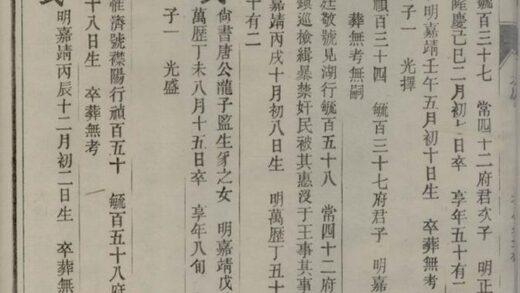 毓百三十七 常四十二府君次子 明正
隆慶己巳二月初七日卒 享年五十有二
明嘉靖壬午五月初十日生 卒葬無考
子一 光擇
禎百三十四 毓百三十七府君子 明嘉
葬無考無嗣
廷敬號見湖行毓百五十八 常四十二府
鎮巡檢緝暴禁奸民被其惠沒于王事其事
嘉靖丙戌十月初八日生 明萬歷丁丑十
十有二
尚書唐公龍子監生之女 明嘉靖戊
萬歷丁未八月十五日卒 享年八旬
子一 光盛
惟濟號襟陽行禎百五十 毓百五十八府
十八日生 卒葬無考
明嘉靖丙辰十二月初二日生 卒葬無考